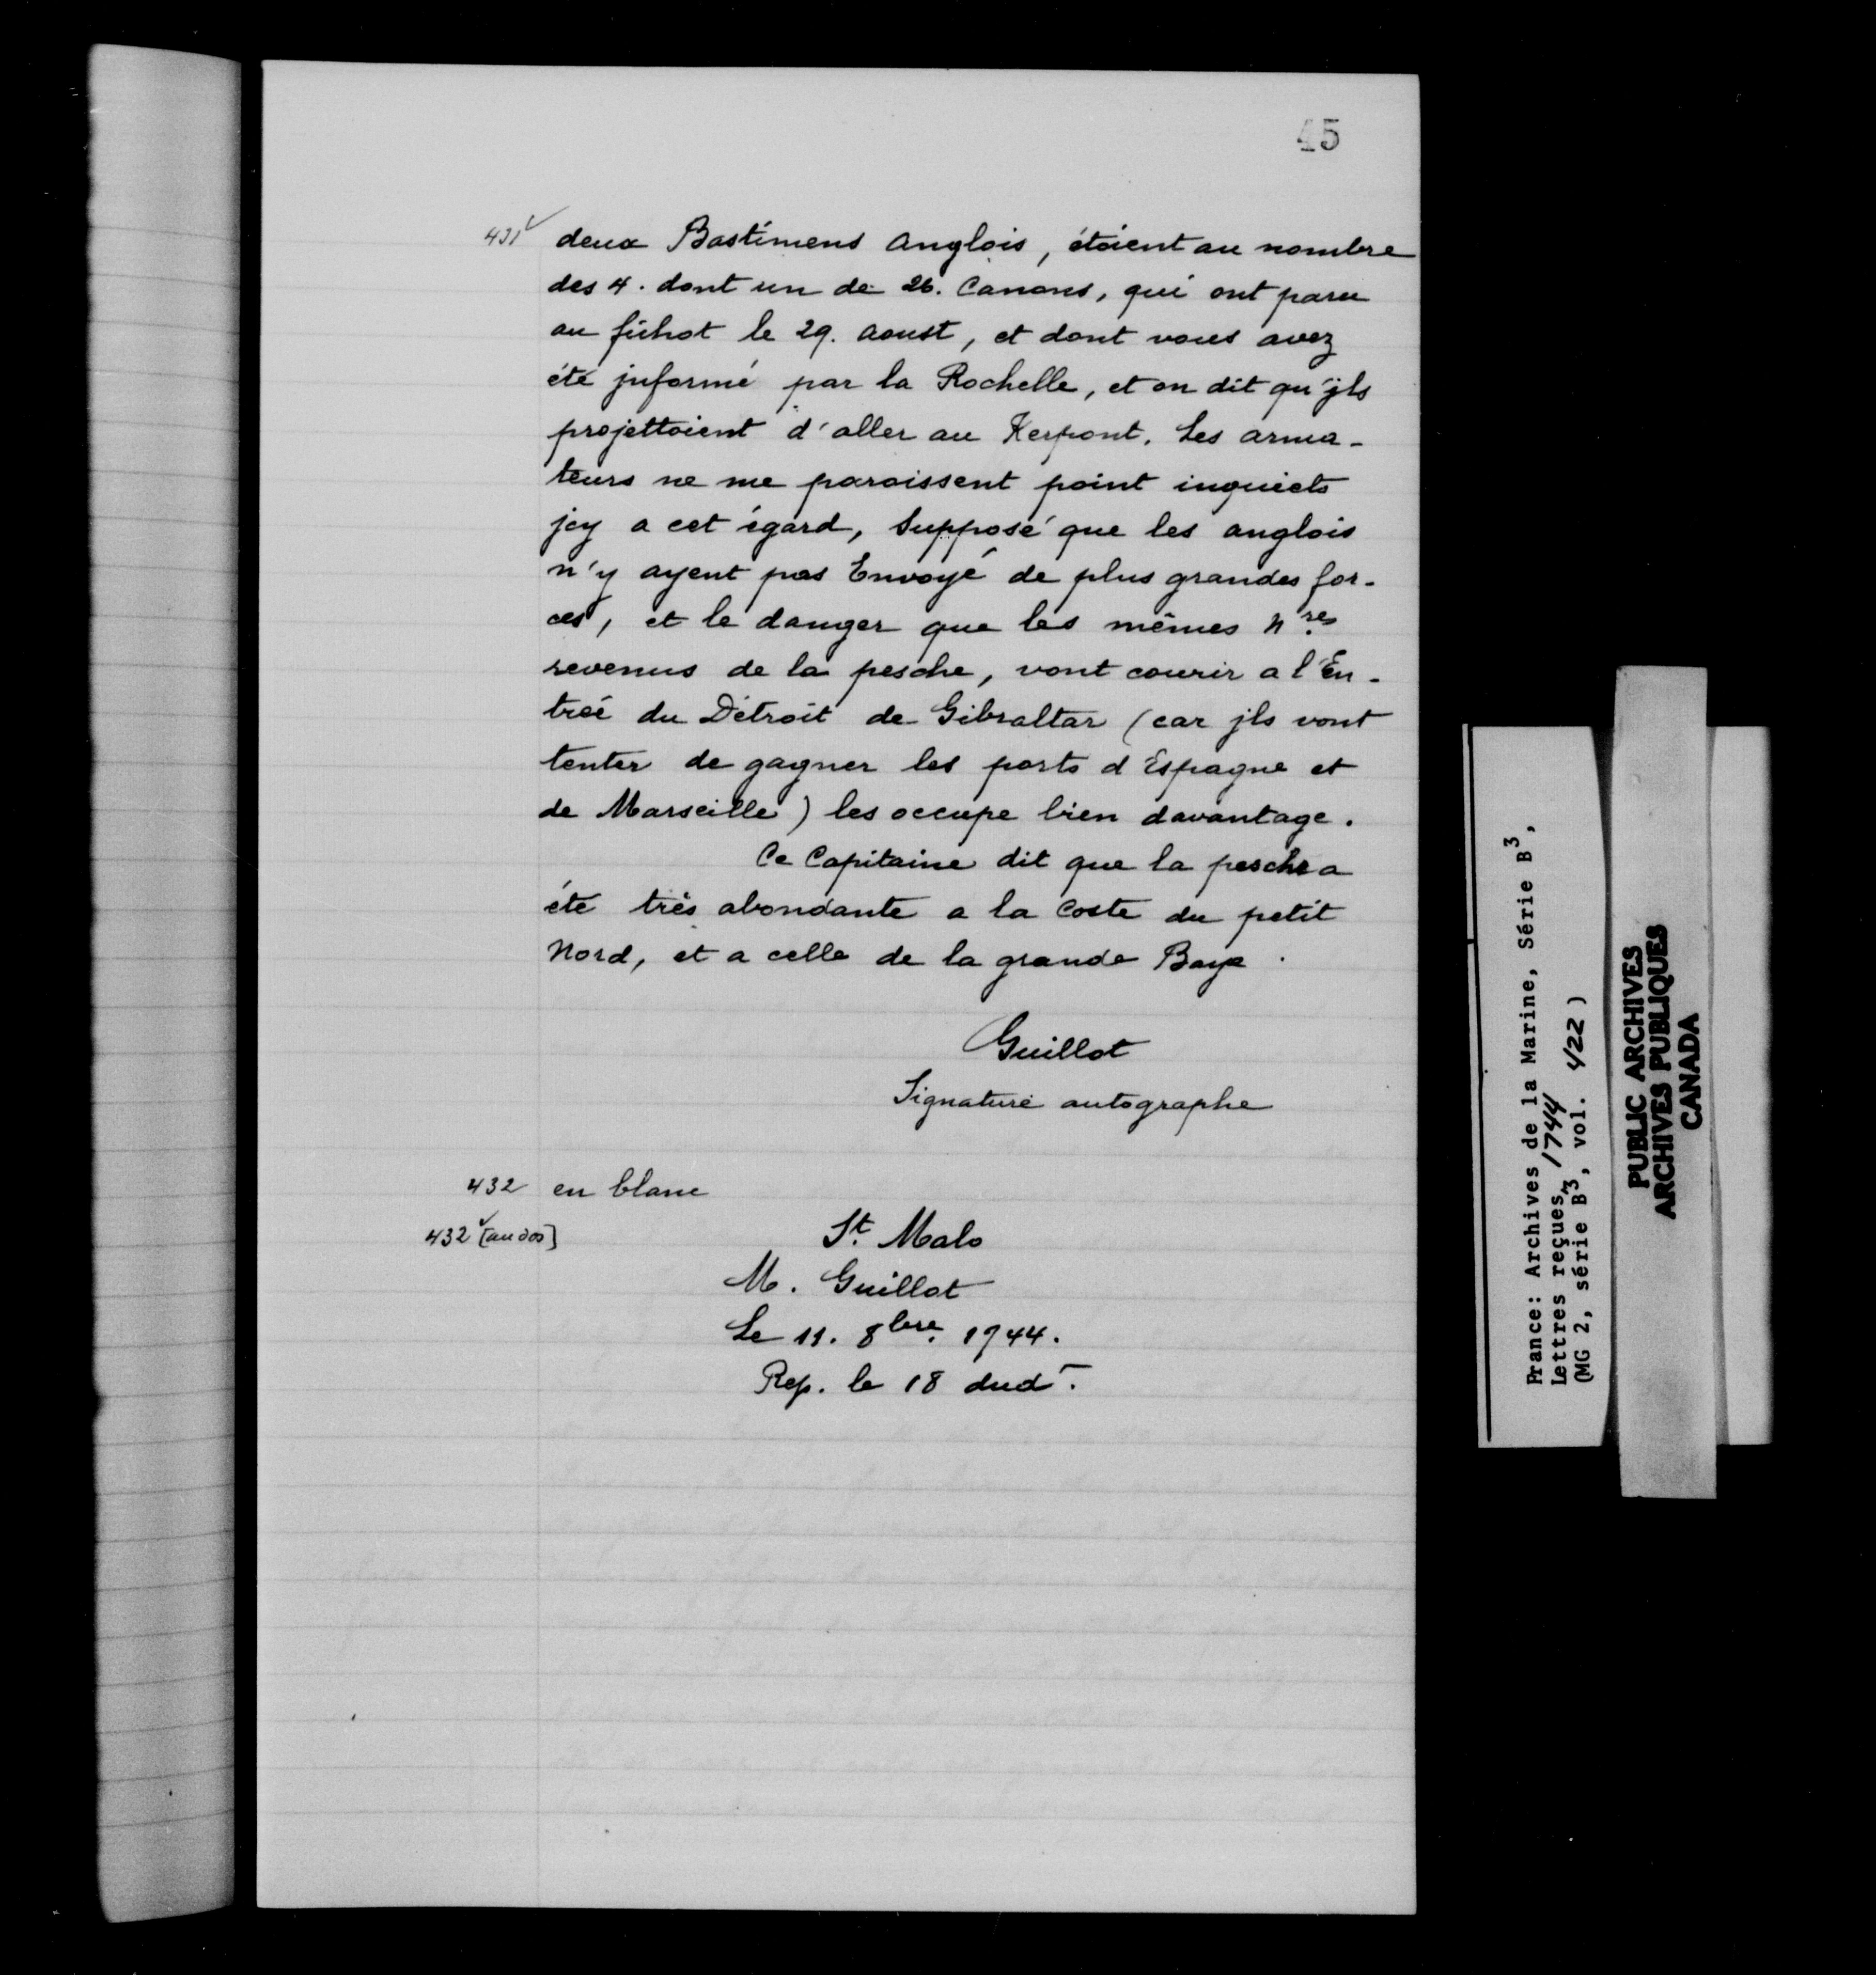 45
431v deux Bastimens anglois, étoient au nombre
des 4. dont un de 26. Canons, qui ont paru
au fichot le 29. aoust, et dont vous avez
été jnformé par la Rochelle, et on dit qu'jls
projettoient d'aller au Kerpont. Les arma-
teurs ne me paroissent point inquiets
jcy a cet égard, Supposé que les anglois
n'y ayent pas Envoyé de plus grandes for-
ces, et le danger que les mêmes N.res
revenus de la pesche, vont courir a l'En-
trée du Détroit de Gibraltar (car jls vont
tenter de gagner les ports d'Espagne et
de Marseille) les occupe bien davantage.
Ce Capitaine dit que la pesche a
été très abondante a la Coste du petit
Nord, et a celle de la grande Baye.
Guillot
Signature autographe
432 en blanc
432v [au dos] St. Malo
M. Guillot
Le 11. 8bre. 1744.
Rep. le 18 dud.t
France: Archives de la Marine, Série B3,
Lettres reçues, 1744
(MG 2, série B3, vol. 422)
PUBLIC ARCHIVES
ARCHIVES PUBLIQUES
CANADA